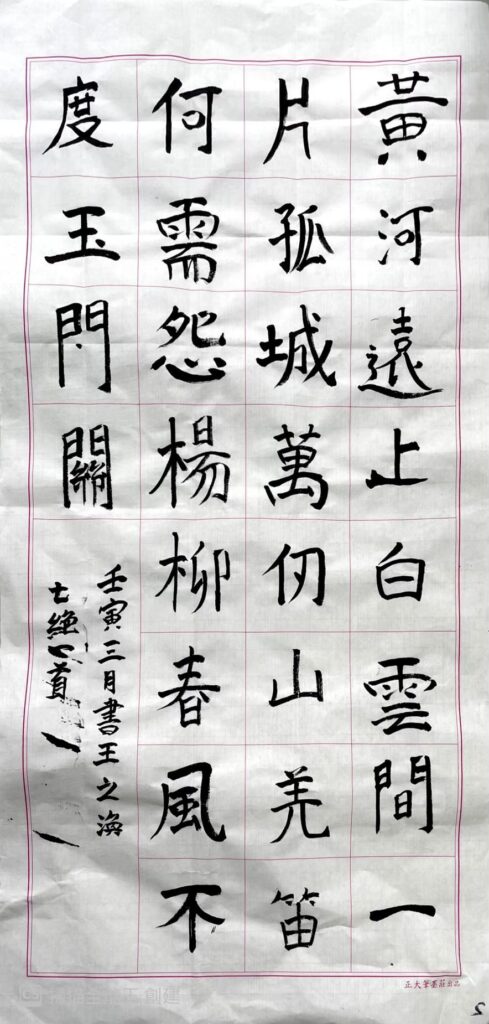 黃河遠上白雲間一
片孤城萬仞山羌笛
何需怨楊柳春風不
度玉門關
壬寅三月書王之渙
七絕一首
正大筆墨莊出品
5